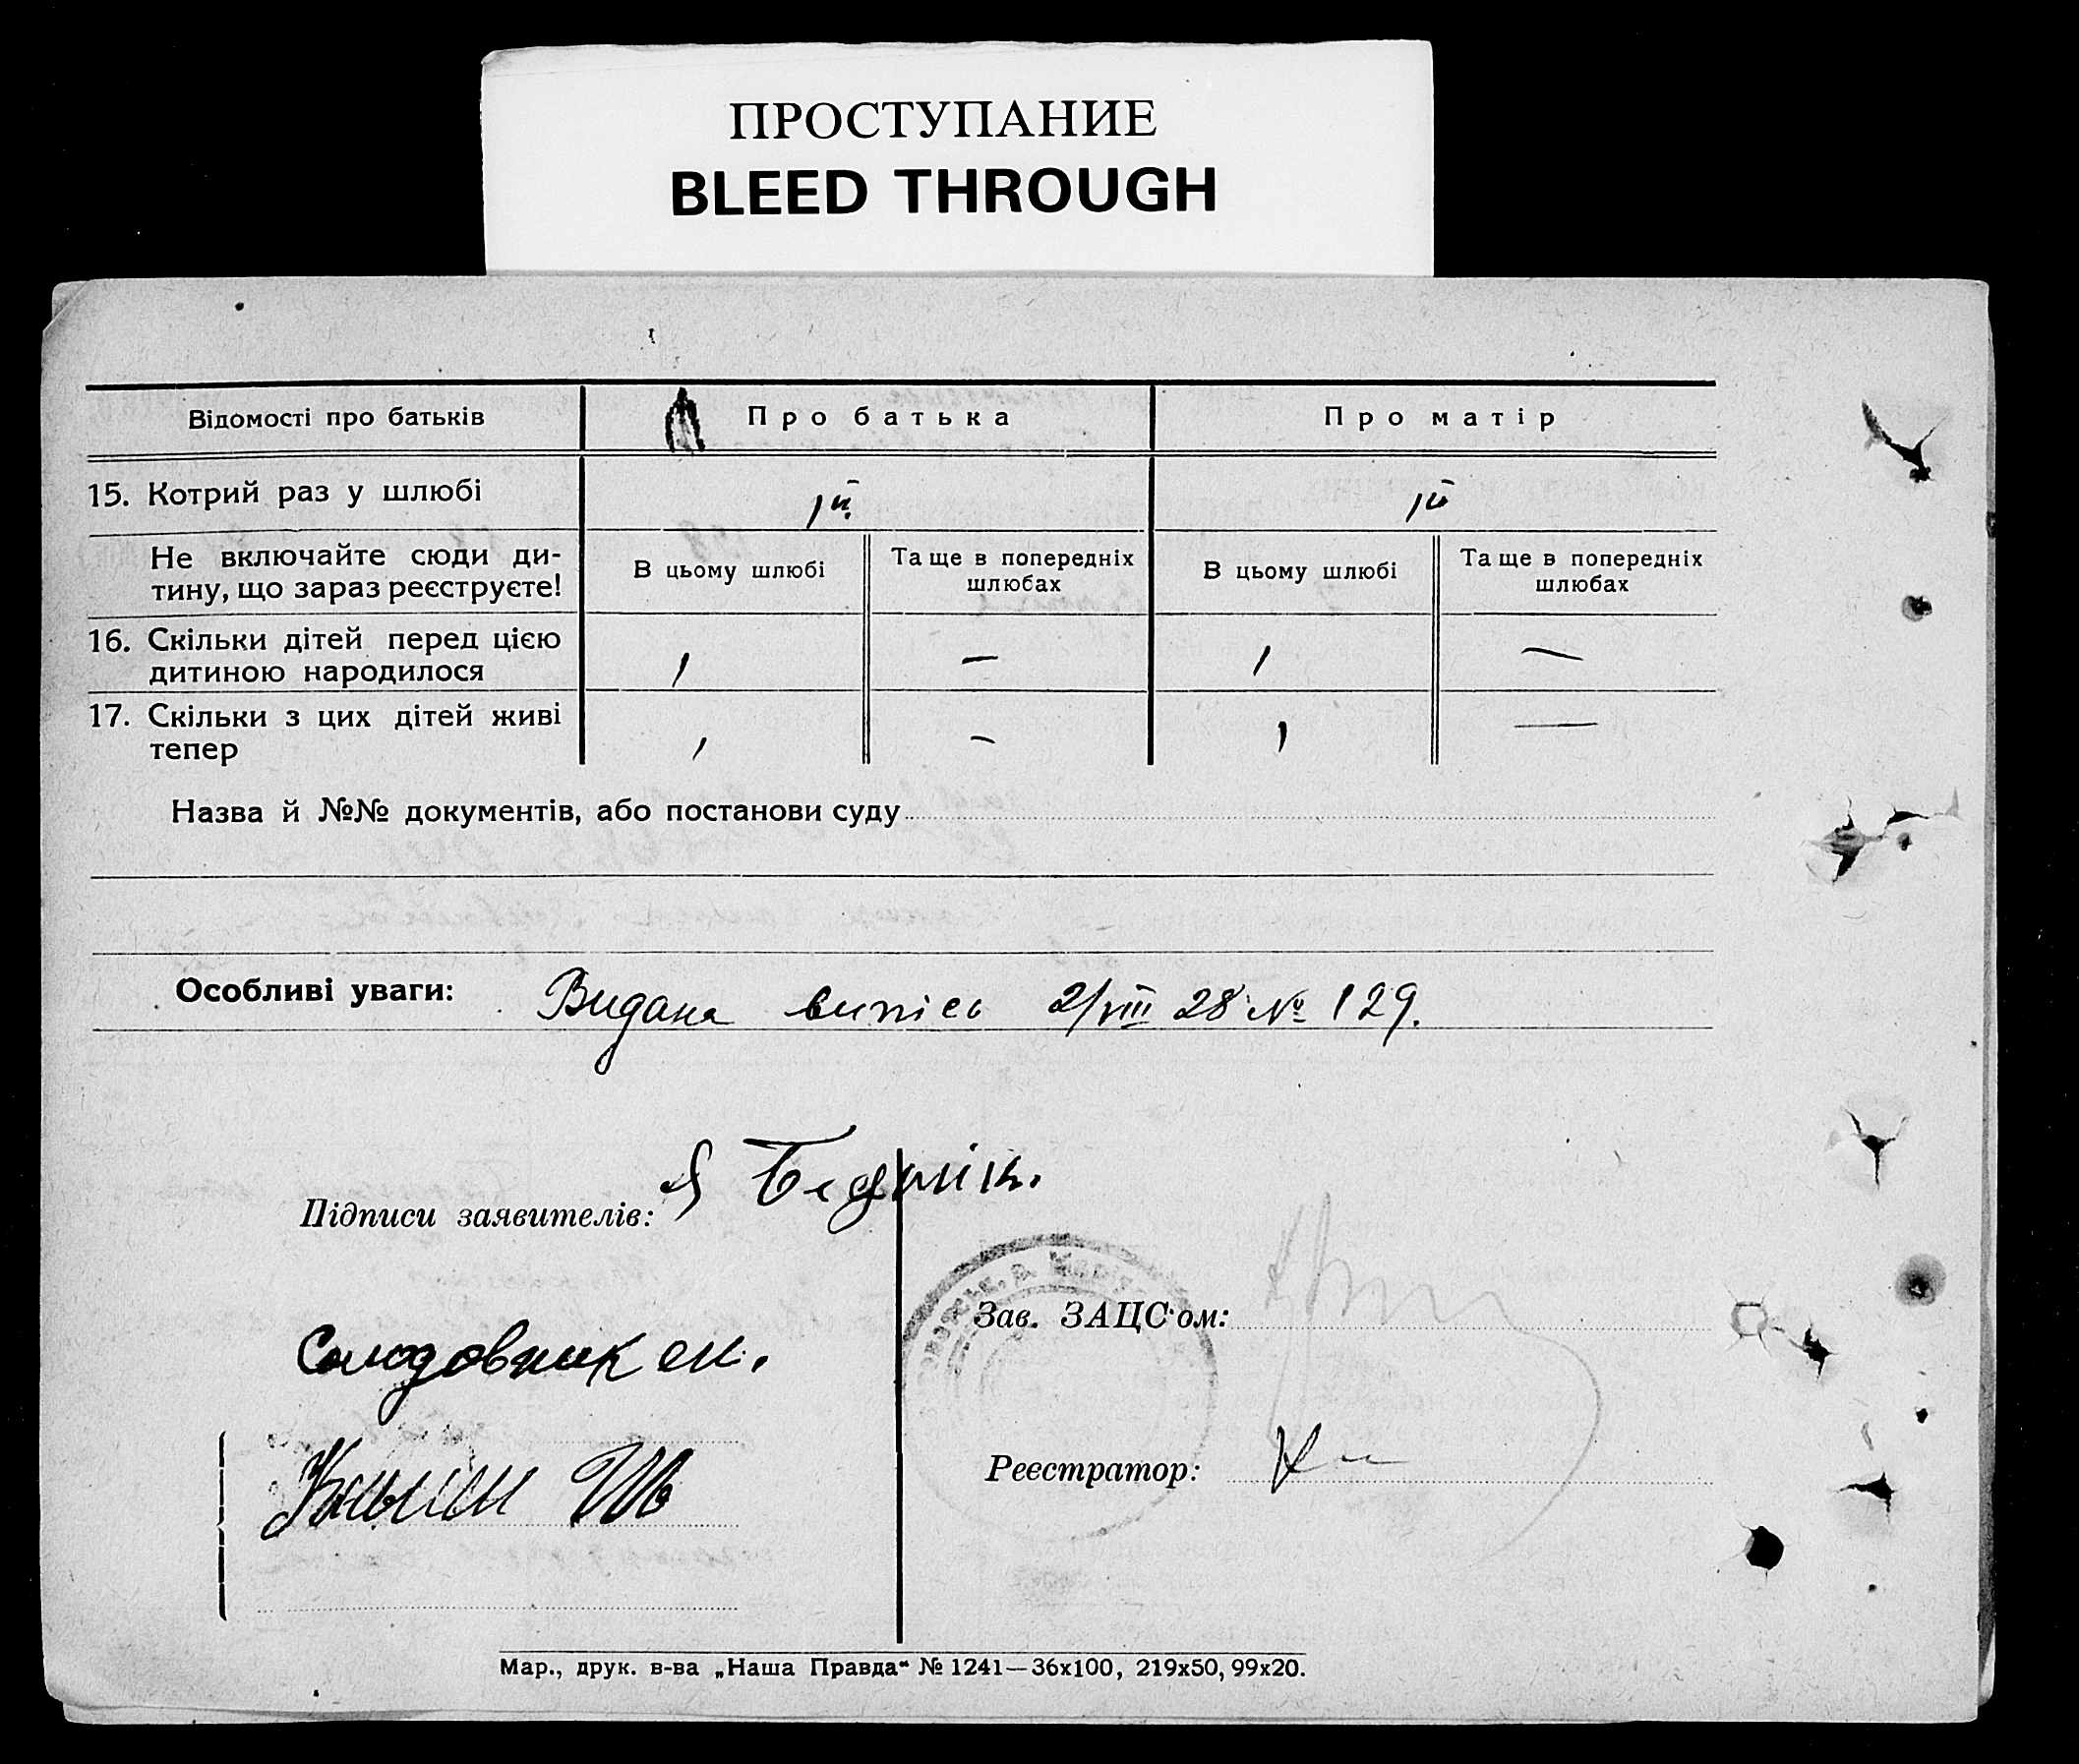 ПРОСТУПАНИЕ
BLEED THROUGH
Відомості про батьків Про батька Про матір
15. Котрий раз у шлюбі 1й. 1й
Не включайте сюди ди-
тину, що зараз реєструєте!
В цьому шлюбі
Та ще в попередніх
шлюбах
В цьому шлюбі
Та ще в попередніх
шлюбах
16. Скільки дітей перед цією
дитиною народилося
1 — 1 —
17. Скільки з цих дітей живі
тепер
1 — 1 —
Назва й №№ документів, або постанови суду
Особливі уваги: Видана випісь 2/VIII 28 № 129.
Підписи заявителів:
Солодовник
Зав. ЗАЦС'ом:
Реєстратор:
Мар., друк. в-ва „Наша Правда" № 1241—36х100, 219х50, 99х20.